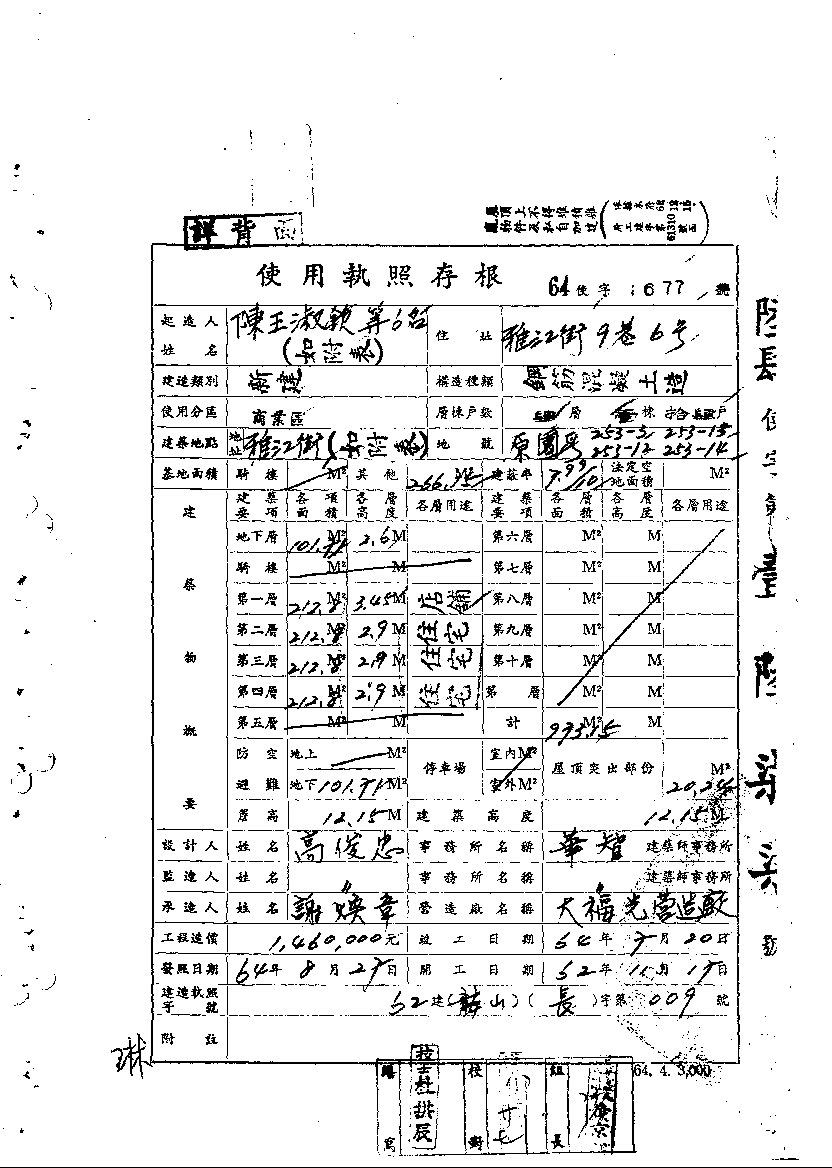 詳背面
屋頂上不得堆積雜
物件及私自加建
使用執照存根
64 使字 1677 號
起造人姓名 陳王淑 等6名(如附表) 住址 雅江街9巷6号
建造類別 新建 構造種類 鋼筋混凝土造
使用分區 商業區 層棟戶數 層 棟 戶
建築地點 地址 雅江街(如附表) 地號 253-3, 253-15, 253-12 253-14
基地面積 騎樓 M² 其他 266.45 建蔽率 7.99/10 法定空地面積 M²
建築物概要
建築要項 各項面積 各層高度 各層用途 建築要項 各層面積 各層高度 各層用途
地下層 101.91 M² 2.6 M 第六層 M² M
騎樓 M² M 第七層 M² M
第一層 212.8 M² 3.45 M 店鋪 第八層 M² M
第二層 212.8 M² 2.9 M 住宅 第九層 M² M
第三層 212.8 M² 2.9 M 住宅 第十層 M² M
第四層 212.8 M² 2.9 M 住宅 第 層 M² M
第五層 M² M 計 M² M
防空避難 地上 M² 停車場 室內 M² 屋頂突出部份 20.24 M²
地下 101.91 M² 室外 M²
簷高 12.15 M 建築高度 12.15 M
設計人 姓名 高俊忠 事務所名稱 華智 建築師事務所
監造人 姓名 〃 事務所名稱 〃 建築師事務所
承造人 姓名 謝煥章 營造廠名稱 大福光營造廠
工程造價 1,460,000元 竣工日期 64年 7月 20日
發照日期 64年 8月 27日 開工日期 62年 11月 19日
建造執照字號 62建( 山)(長)字第 009 號
附註
琳
64. 4. 3,000
繕寫 校對 組長